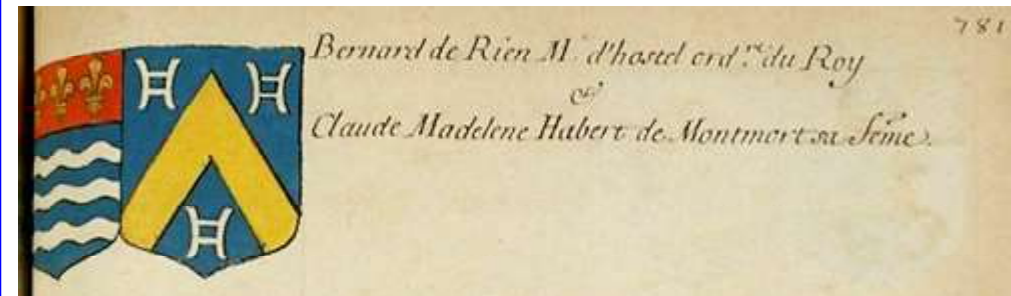 781
Bernard de Rien M.ᵉ d'hostel ord.ʳᵉ du Roy
&
Claude Madelene Habert de Montmort sa fēme.